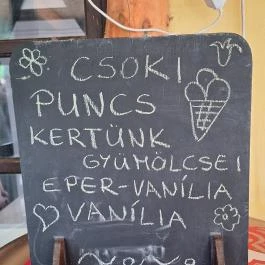 CSOKI
PUNCS
KERTÜNK
GYÜMÖLCSEI
EPER-VANÍLIA
VANÍLIA